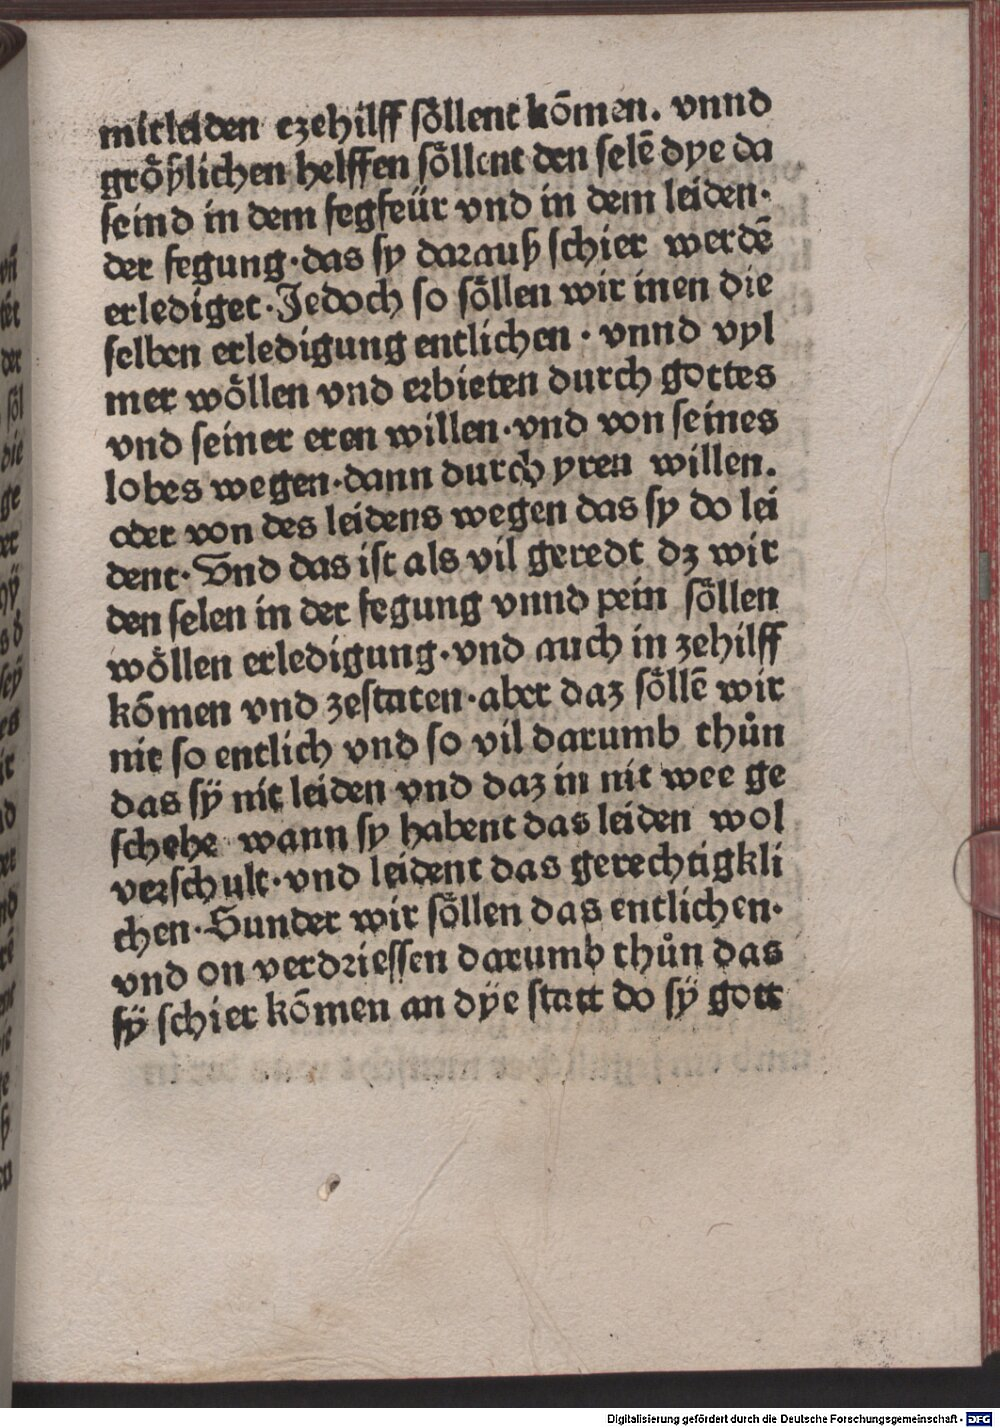 mitleiden ezehilff söllent kōmen. vnnd
gröſzlichen helffen söllent den selē dye da
seind in dem fegfeür vnd in dem leiden·
der fegung·das sy darauſz schier werdē
erlediget·Jedoch so söllen wir inen die
selben erledigung entlichen · vnnd vyl
mer wöllen vnd erbieten durch gottes
vnd seiner eren willen·vnd von seines
lobes wegen·dann durch yren willen.
oder von des leidens wegen das sy do lei
dent·Vnd das ist als vil geredt dz wir
den selen in der fegung vnnd pein söllen
wöllen erledigung·vnd auch in zehilff
kōmen vnd zestaten·aber daz söllē wir
nit so entlich vnd so vil darumb thůn
das sÿ nit leiden vnd daz in nit wee ge
schehe wann sy habent das leiden wol
verschult·vnd leident das gerechtigkli
chen·Sunder wir söllen das entlichen·
vnd on verdriessen darumb thůn das
sÿ schier kōmen an dÿe statt do sÿ gott
Digitalisierung gefördert durch die Deutsche Forschungsgemeinschaft - DFG